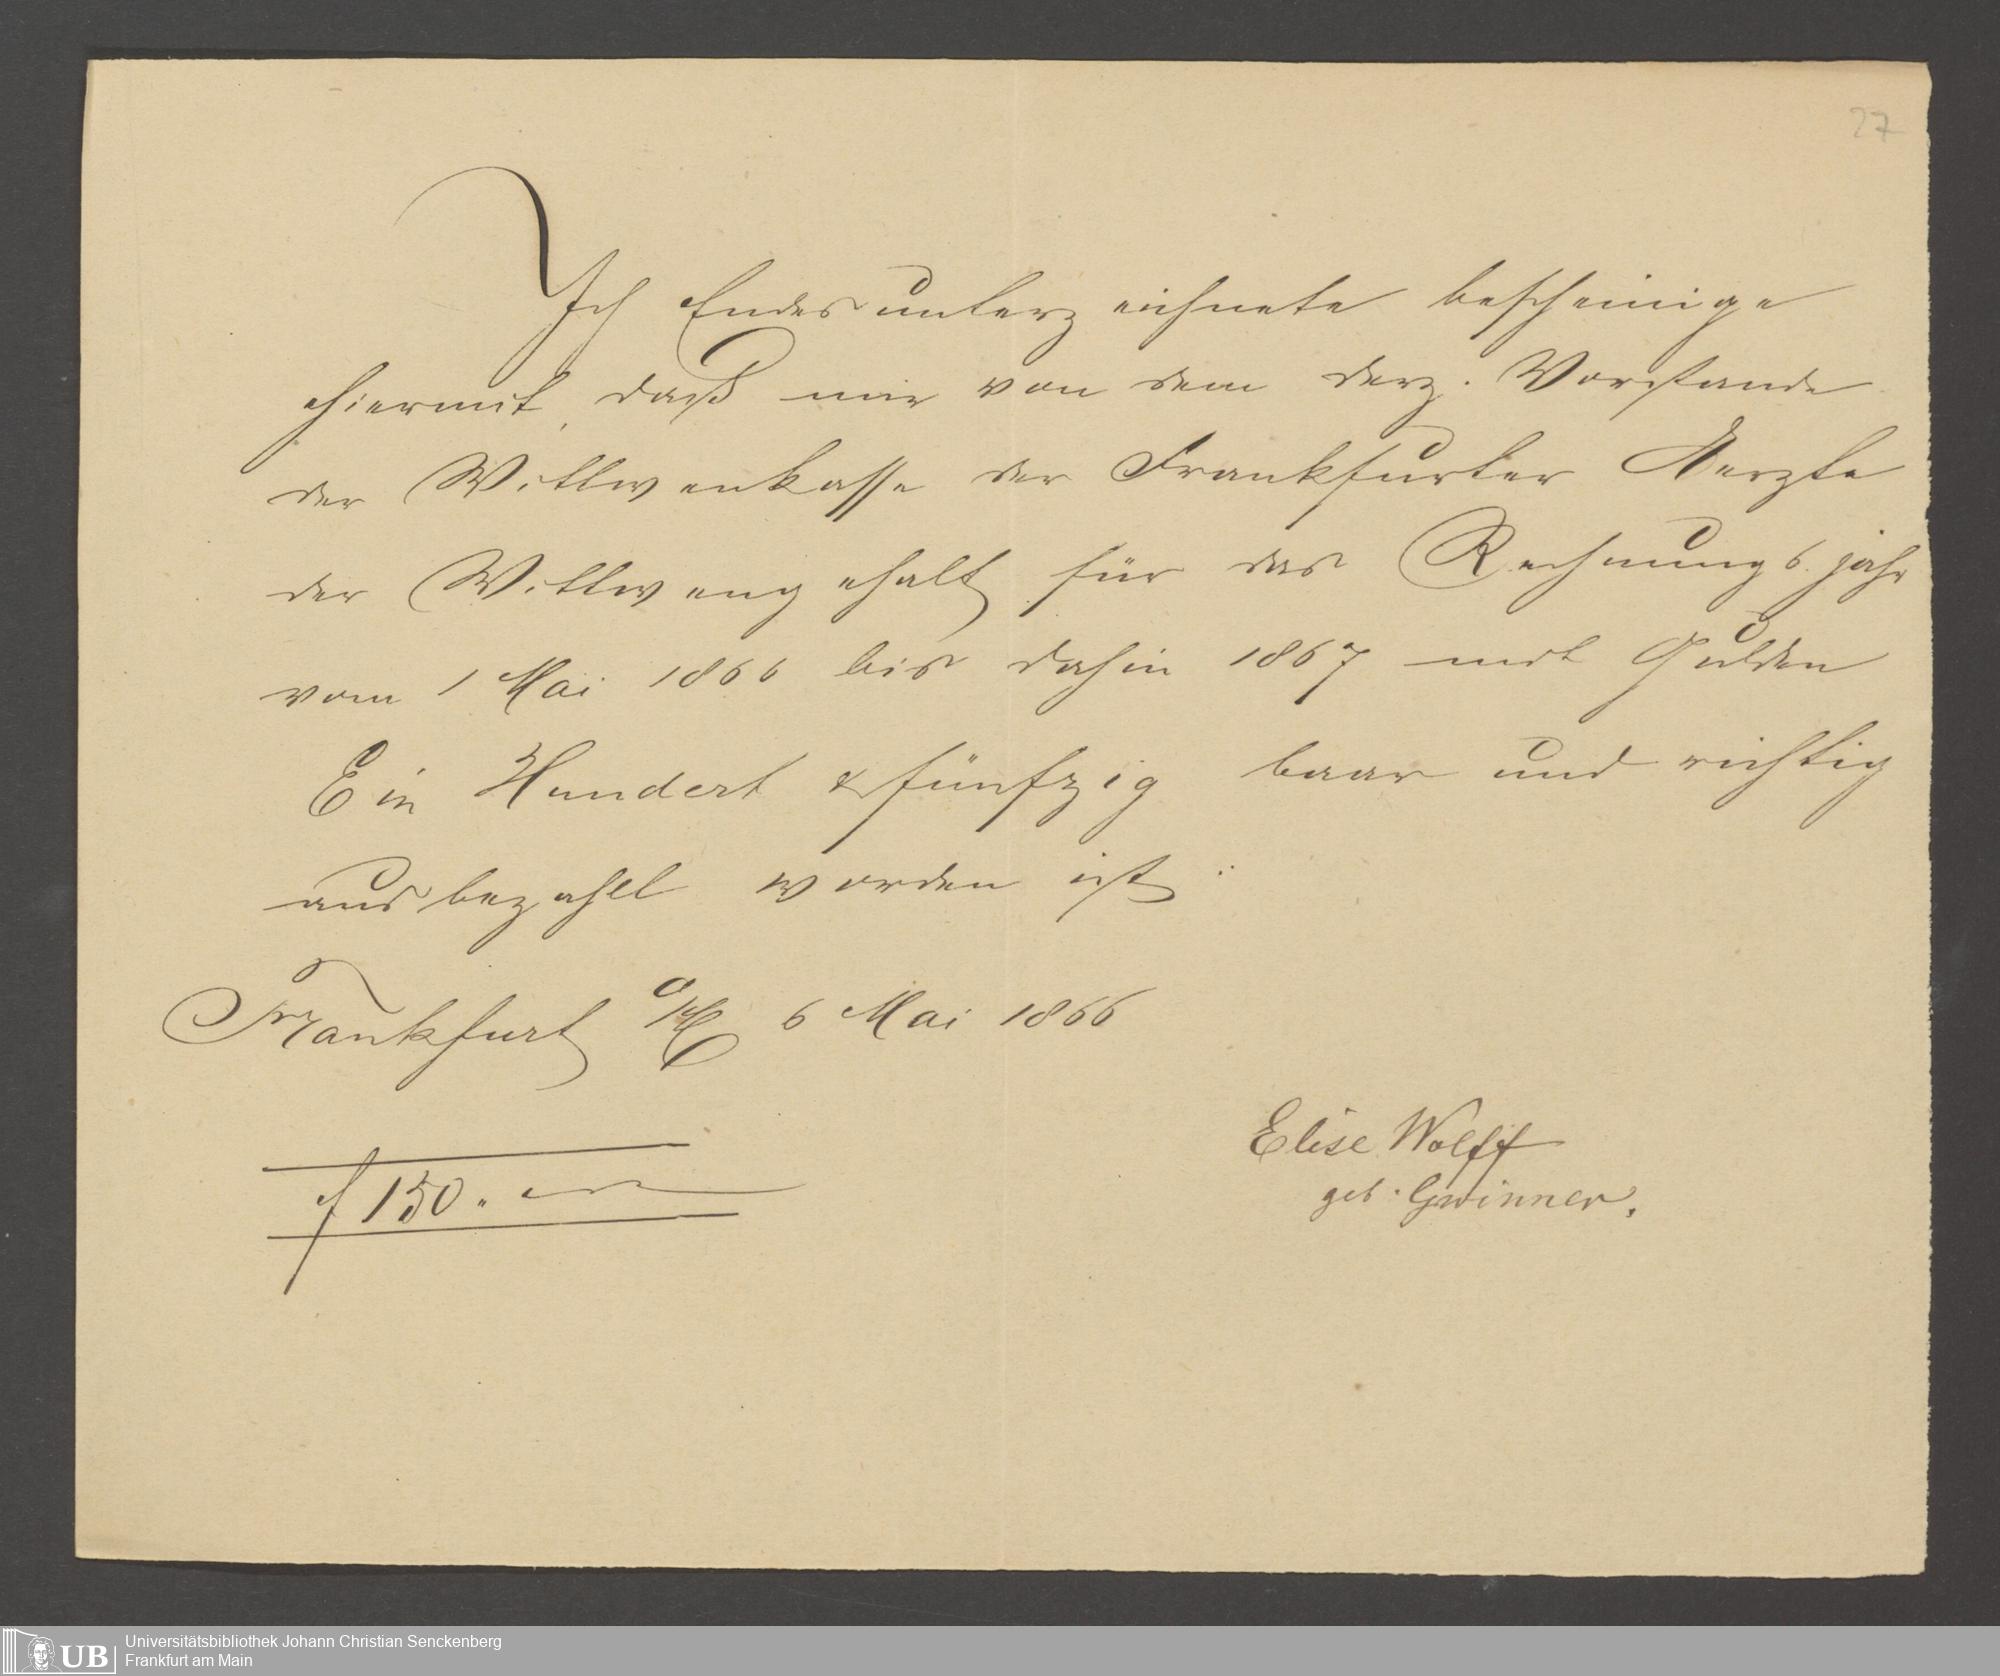 27
Ich Endesunterzeichnete bescheinige
hiermit, daß mir von dem derz. Vorstande
der Wittwenkasse der Frankfurter Aerzte
der Wittwengehalt für das Rechnungsjahr
vom 1 Mai 1866 bis dahin 1867 mit Gulden
Ein Hundert & fünfzig baar und richtig
ausbezahlt worden ist.
Frankfurt a/M 6 Mai 1866
Elise Wolff
geb. Gwinner.
f 150. "
Universitätsbibliothek Johann Christian Senckenberg
Frankfurt am Main
UB